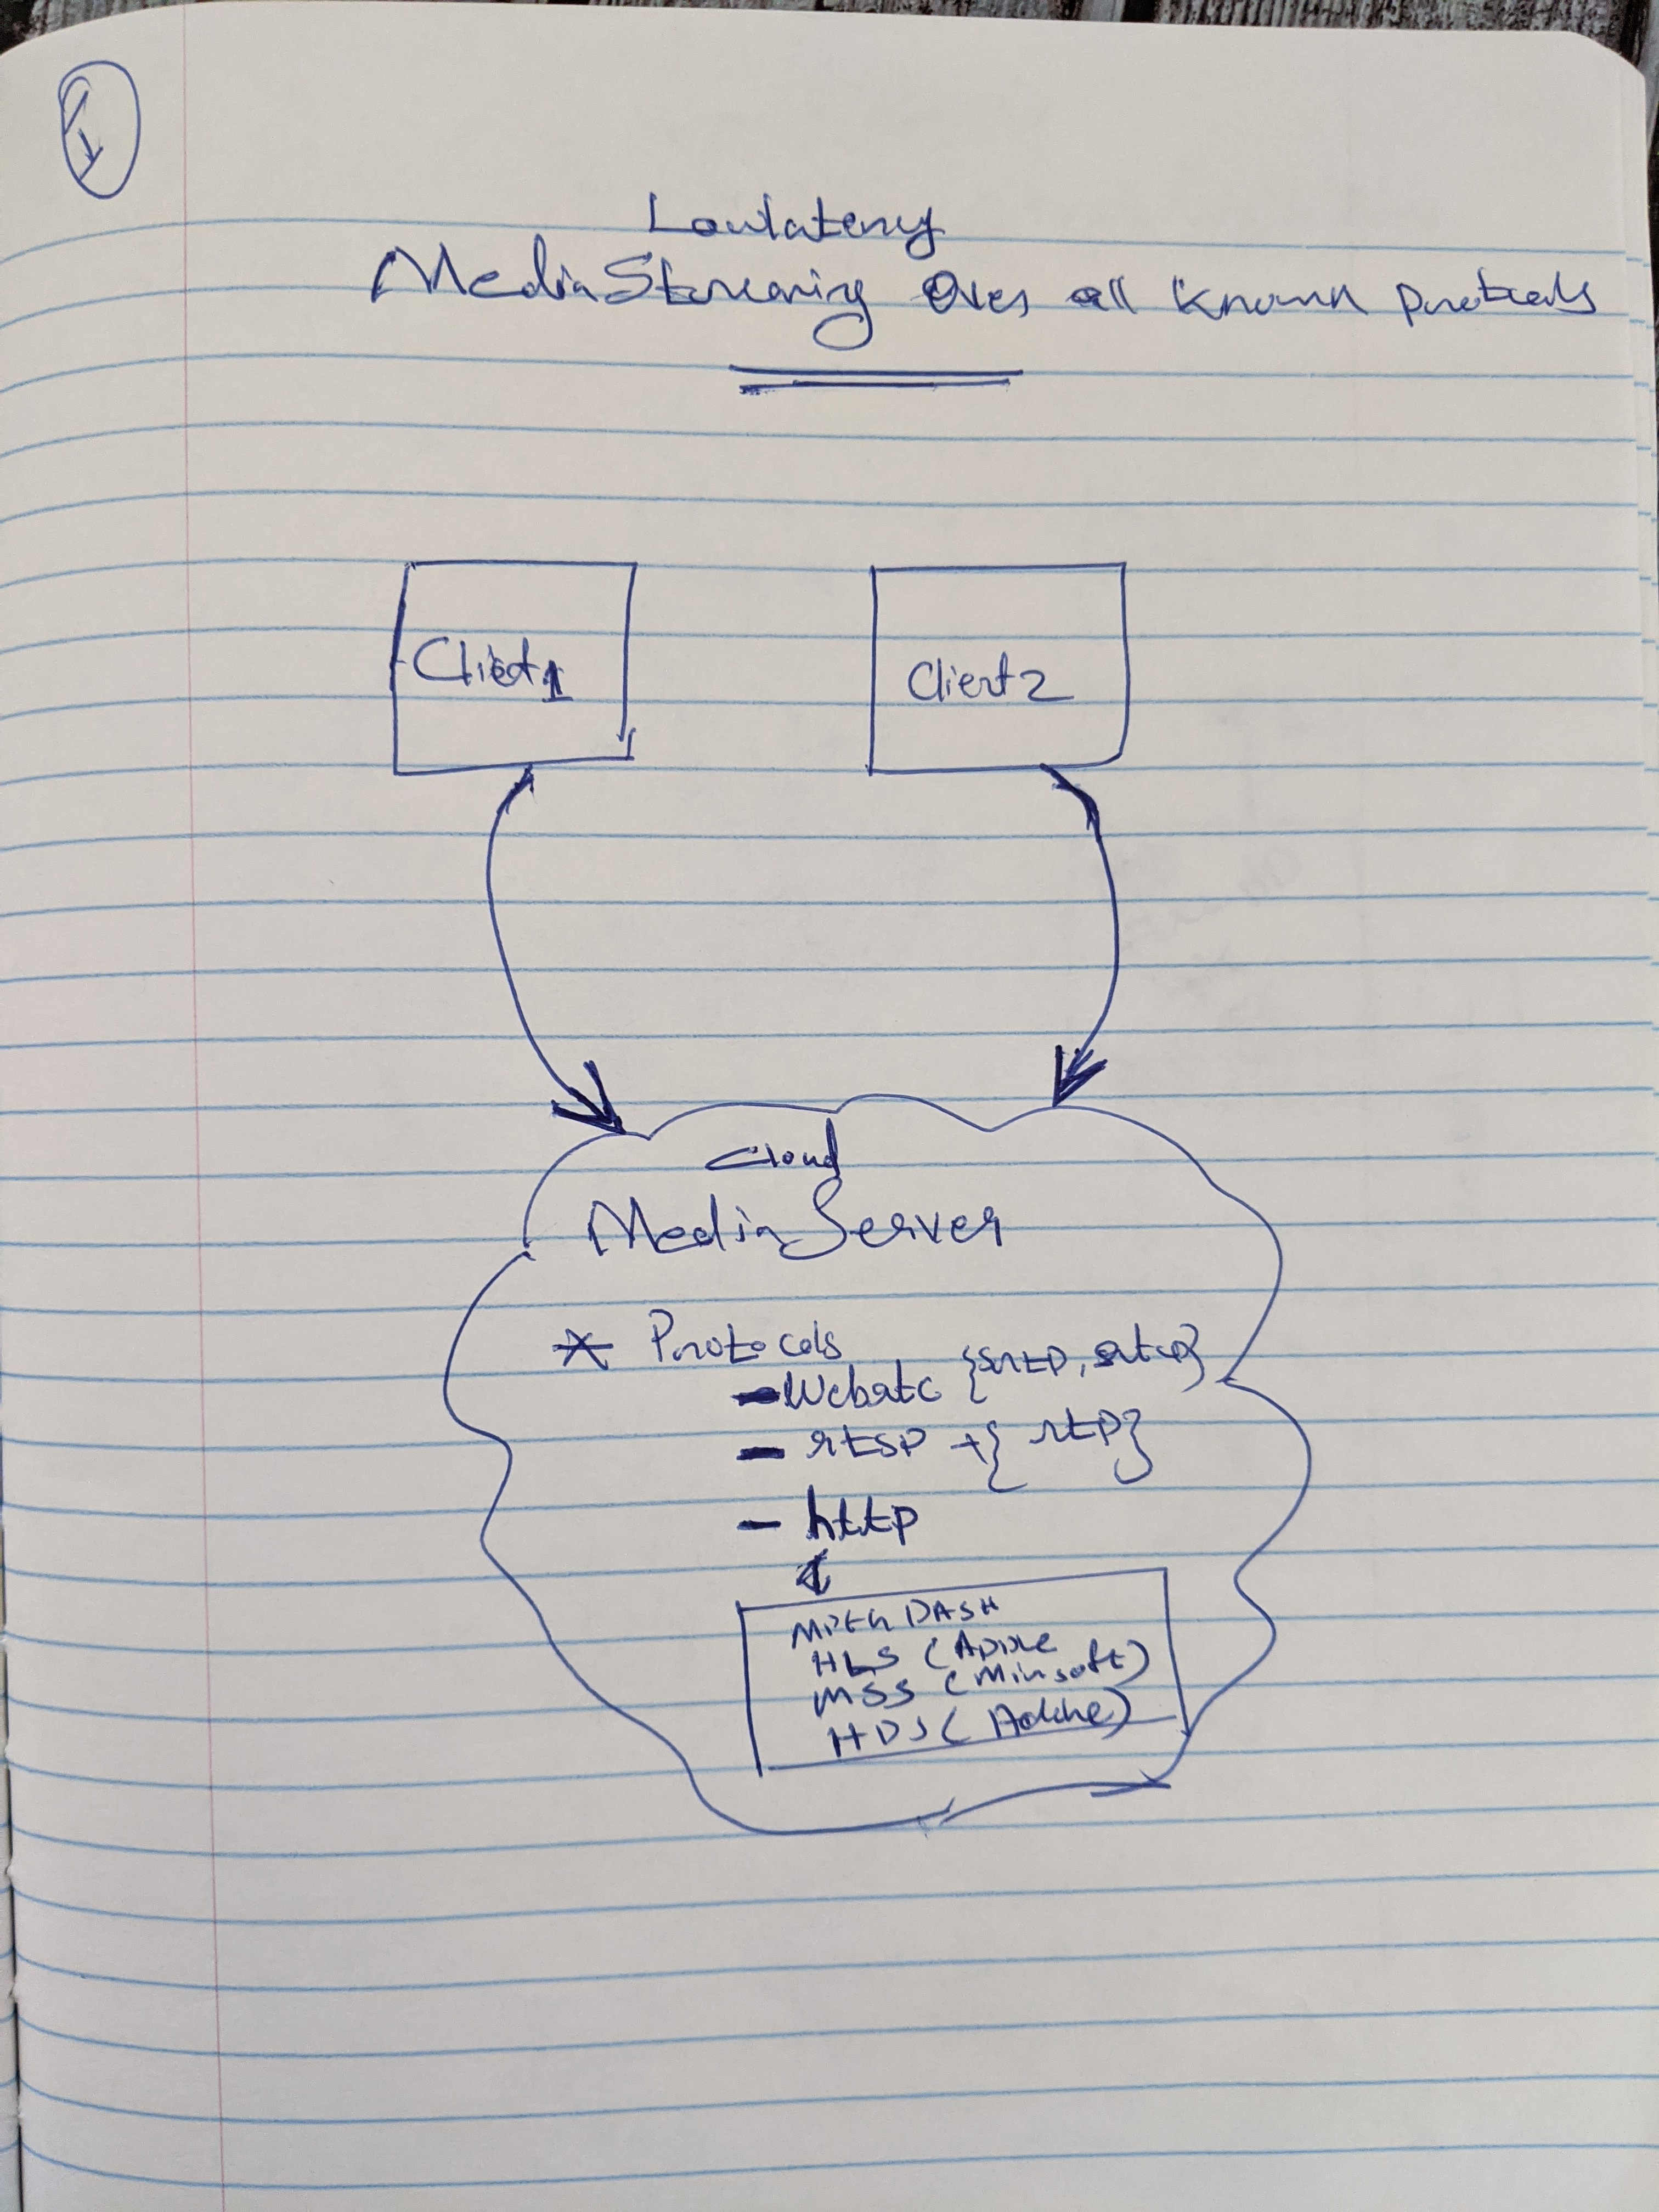 1
Lowlatency
Media Streaming Over all Known protocols
Client1
Client2
Cloud
Media Server
* Protocols
- Webrtc {srtp, srtcp}
- rtsp + {rtp}
- http
MPEG DASH
HLS (Apple
MSS (Mirsoft)
HDS (Adobe)